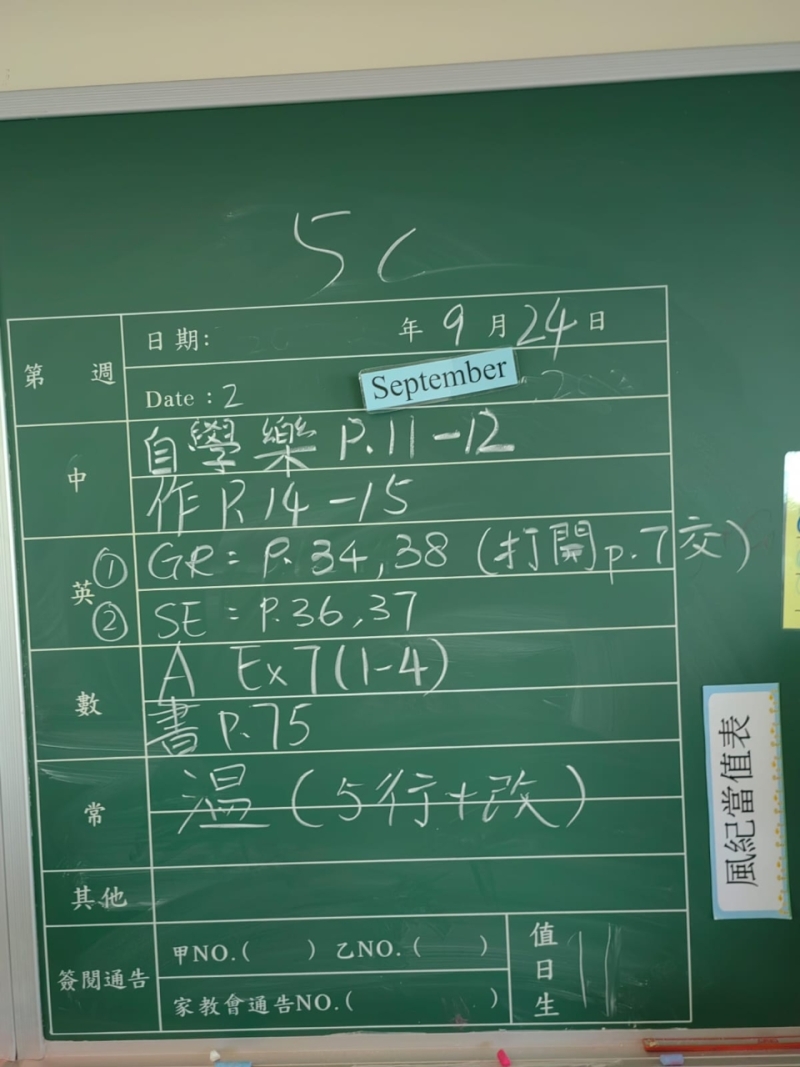 5C
第 週
日期: 年 9 月 24 日
Date : 2 September
中
自學樂 P.11-12
作 P.14-15
英
① GR = P.34,38 (打開p.7交)
② SE = P.36,37
數
A Ex7(1-4)
書 P.75
常
溫(5行+改)
其他
簽閱通告
甲NO.( ) 乙NO.( )
家教會通告NO.( )
值日生 11
風紀當值表